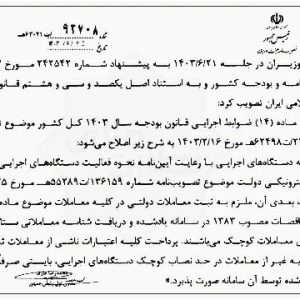 رئیس جمهور
شماره ۹۲۷۰۸ / ت۶۳۰۴۱هـ
وزیران در جلسه ۱۴۰۳/۶/۲۱ به پیشنهاد شماره ۲۴۲۵۴۲ مورخ
مه و بودجه کشور و به استناد اصل یکصد و سی و هشتم قانو
لامی ایران تصویب کرد:
ماده (۱۴) ضوابط اجرایی قانون بودجه سال ۱۴۰۳ کل کشور موضوع ت
/ت۶۲۴۹۸هـ مورخ ۱۴۰۳/۲/۱۶ به شرح زیر اصلاح می‌شود:
ه دستگاه‌های اجرایی با رعایت آیین‌نامه نحوه فعالیت دستگاه‌های اجرایی
کترونیکی دولت موضوع تصویب‌نامه شماره ۱۳۶۱۵۹/ت۵۵۲۸۹هـ مورخ
بعدی آن، ملزم به ثبت معاملات دولتی در کلیه معاملات موضوع ماده
ناقصات مصوب ۱۳۸۳ در سامانه یادشده و دریافت شناسه معاملاتی ستا
معاملات کوچک می‌باشند. پرداخت کلیه اعتبارات ناشی از معاملات
به غیر از معاملات در حد نصاب کوچک دستگاه‌های اجرایی، بایستی صرف
شده توسط آن سامانه صورت پذیرد.»